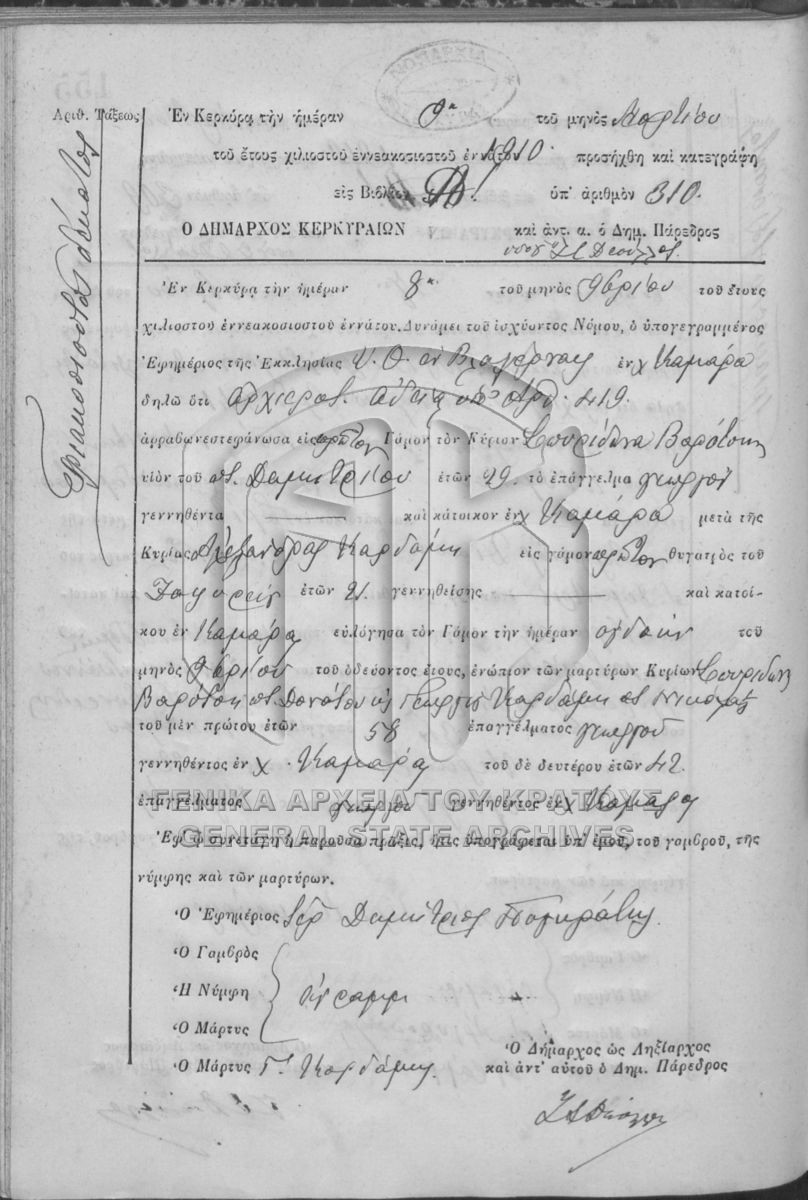 ΝΟΜΑΡΧΙΑ
Ἀριθ. Τάξεως
Τριακοσιοστὸς δέκατος
Ἐν Κερκύρᾳ τὴν ἡμέραν 9η τοῦ μηνὸς Μαρτίου
τοῦ ἔτους χιλιοστοῦ ἐννεακοσιοστοῦ ἐννάτου 1910. προσήχθη καὶ κατεγράφη
εἰς Βιβλίον ὑπ' ἀριθμὸν 310.
Ὁ ΔΗΜΑΡΧΟΣ ΚΕΡΚΥΡΑΙΩΝ καὶ ἀντ. α. ὁ Δημ. Πάρεδρος
Ἐν Κερκύρᾳ τὴν ἡμέραν 8η τοῦ μηνὸς 9βρίου τοῦ ἔτους
χιλιοστοῦ ἐννεακοσιοστοῦ ἐννάτου. Δυνάμει τοῦ ἰσχύοντος Νόμου, ὁ ὑπογεγραμμένος
Ἐφημέριος τῆς Ἐκκλησίας Υ. Θ. ἐν Βλαχέρναις ἐν χ Καμάρα
δηλῶ ὅτι ἀρχιερατ. ἀδείᾳ ὑπ' ἀρθ. 419.
ἀρραβωνεστεφάνωσα εἰς πρῶτον Γάμον τὸν Κύριον Σπυρίδωνα Βαρότση
υἱὸν τοῦ ποτ. Δημητρίου ἐτῶν 29. τὸ ἐπάγγελμα γεωργοῦ
γεννηθέντα καὶ κάτοικον ἐν χ Καμάρα μετὰ τῆς
Κυρίας Ἀλεξάνδρας Καρδάμη εἰς γάμον πρῶτον θυγατρὸς τοῦ
ἐτῶν 21. γεννηθείσης καὶ κατοί-
κου ἐν Καμάρα εὐλόγησα τὸν Γάμον τὴν ἡμέραν ὀγδόην τοῦ
μηνὸς 9βρίου τοῦ ὁδεύοντος ἔτους, ἐνώπιον τῶν μαρτύρων Κυρίων Σπυρίδων
Βαρότση ποτ. Δονάτου κ Γεωργίου Καρδάμη ποτ
τοῦ μὲν πρώτου ἐτῶν 58 ἐπαγγέλματος γεωργοῦ
γεννηθέντος ἐν χ. Καμάρα τοῦ δὲ δευτέρου ἐτῶν 42.
ἐπαγγέλματος γεωργοῦ γεννηθέντος ἐν χ Καμάρα
ΓΕΝΙΚΑ ΑΡΧΕΙΑ ΤΟΥ ΚΡΑΤΟΥΣ
GENERAL STATE ARCHIVES
Ἐφ' ᾧ συνετάγη ἡ παροῦσα πρᾶξις, ἥτις ὑπογράφεται ὑπ' ἐμοῦ, τοῦ γομβροῦ, τῆς
νύμφης καὶ τῶν μαρτύρων.
Ὁ Ἐφημέριος Ἱερ Δημήτριος
Ὁ Γαμβρὸς
Ἡ Νύμφη ἀγράμμ
Ὁ Μάρτυς
Ὁ Μάρτυς Γ. Καρδάμης
Ὁ Δήμαρχος ὡς Ληξίαρχος
καὶ ἀντ' αὐτοῦ ὁ Δημ. Πάρεδρος